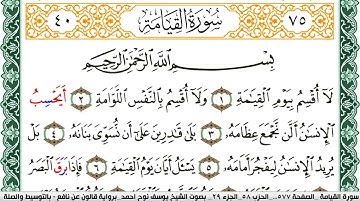 ٧٥ سُورَةُ القِيَامَةِ ٤٠
بِسْمِ اللَّهِ الرَّحْمَٰنِ الرَّحِيمِ
لَا أُقْسِمُ بِيَوْمِ الْقِيَٰمَةِ ١ وَلَا أُقْسِمُ بِالنَّفْسِ اللَّوَّامَةِ ٢ أَيَحْسِبُ
الْإِنسَٰنُ أَلَّن نَّجْمَعَ عِظَامَهُ ٣ بَلَىٰ قَٰدِرِينَ عَلَىٰ أَن نُّسَوِّيَ بَنَانَهُ ٤ بَلْ
يُرِيدُ الْإِنسَٰنُ لِيَفْجُرَ أَمَامَهُ ٥ يَسْـَٔلُ أَيَّانَ يَوْمُ الْقِيَٰمَةِ ٦ فَإِذَا بَرَقَ الْبَصَرُ
سورة القيامة، الصفحة ٥٧٧، الحزب ٥٨، الجزء ٢٩. بصوت الشيخ يوسف نوح احمد برواية قالون عن نافع - بالتوسيط والصلة